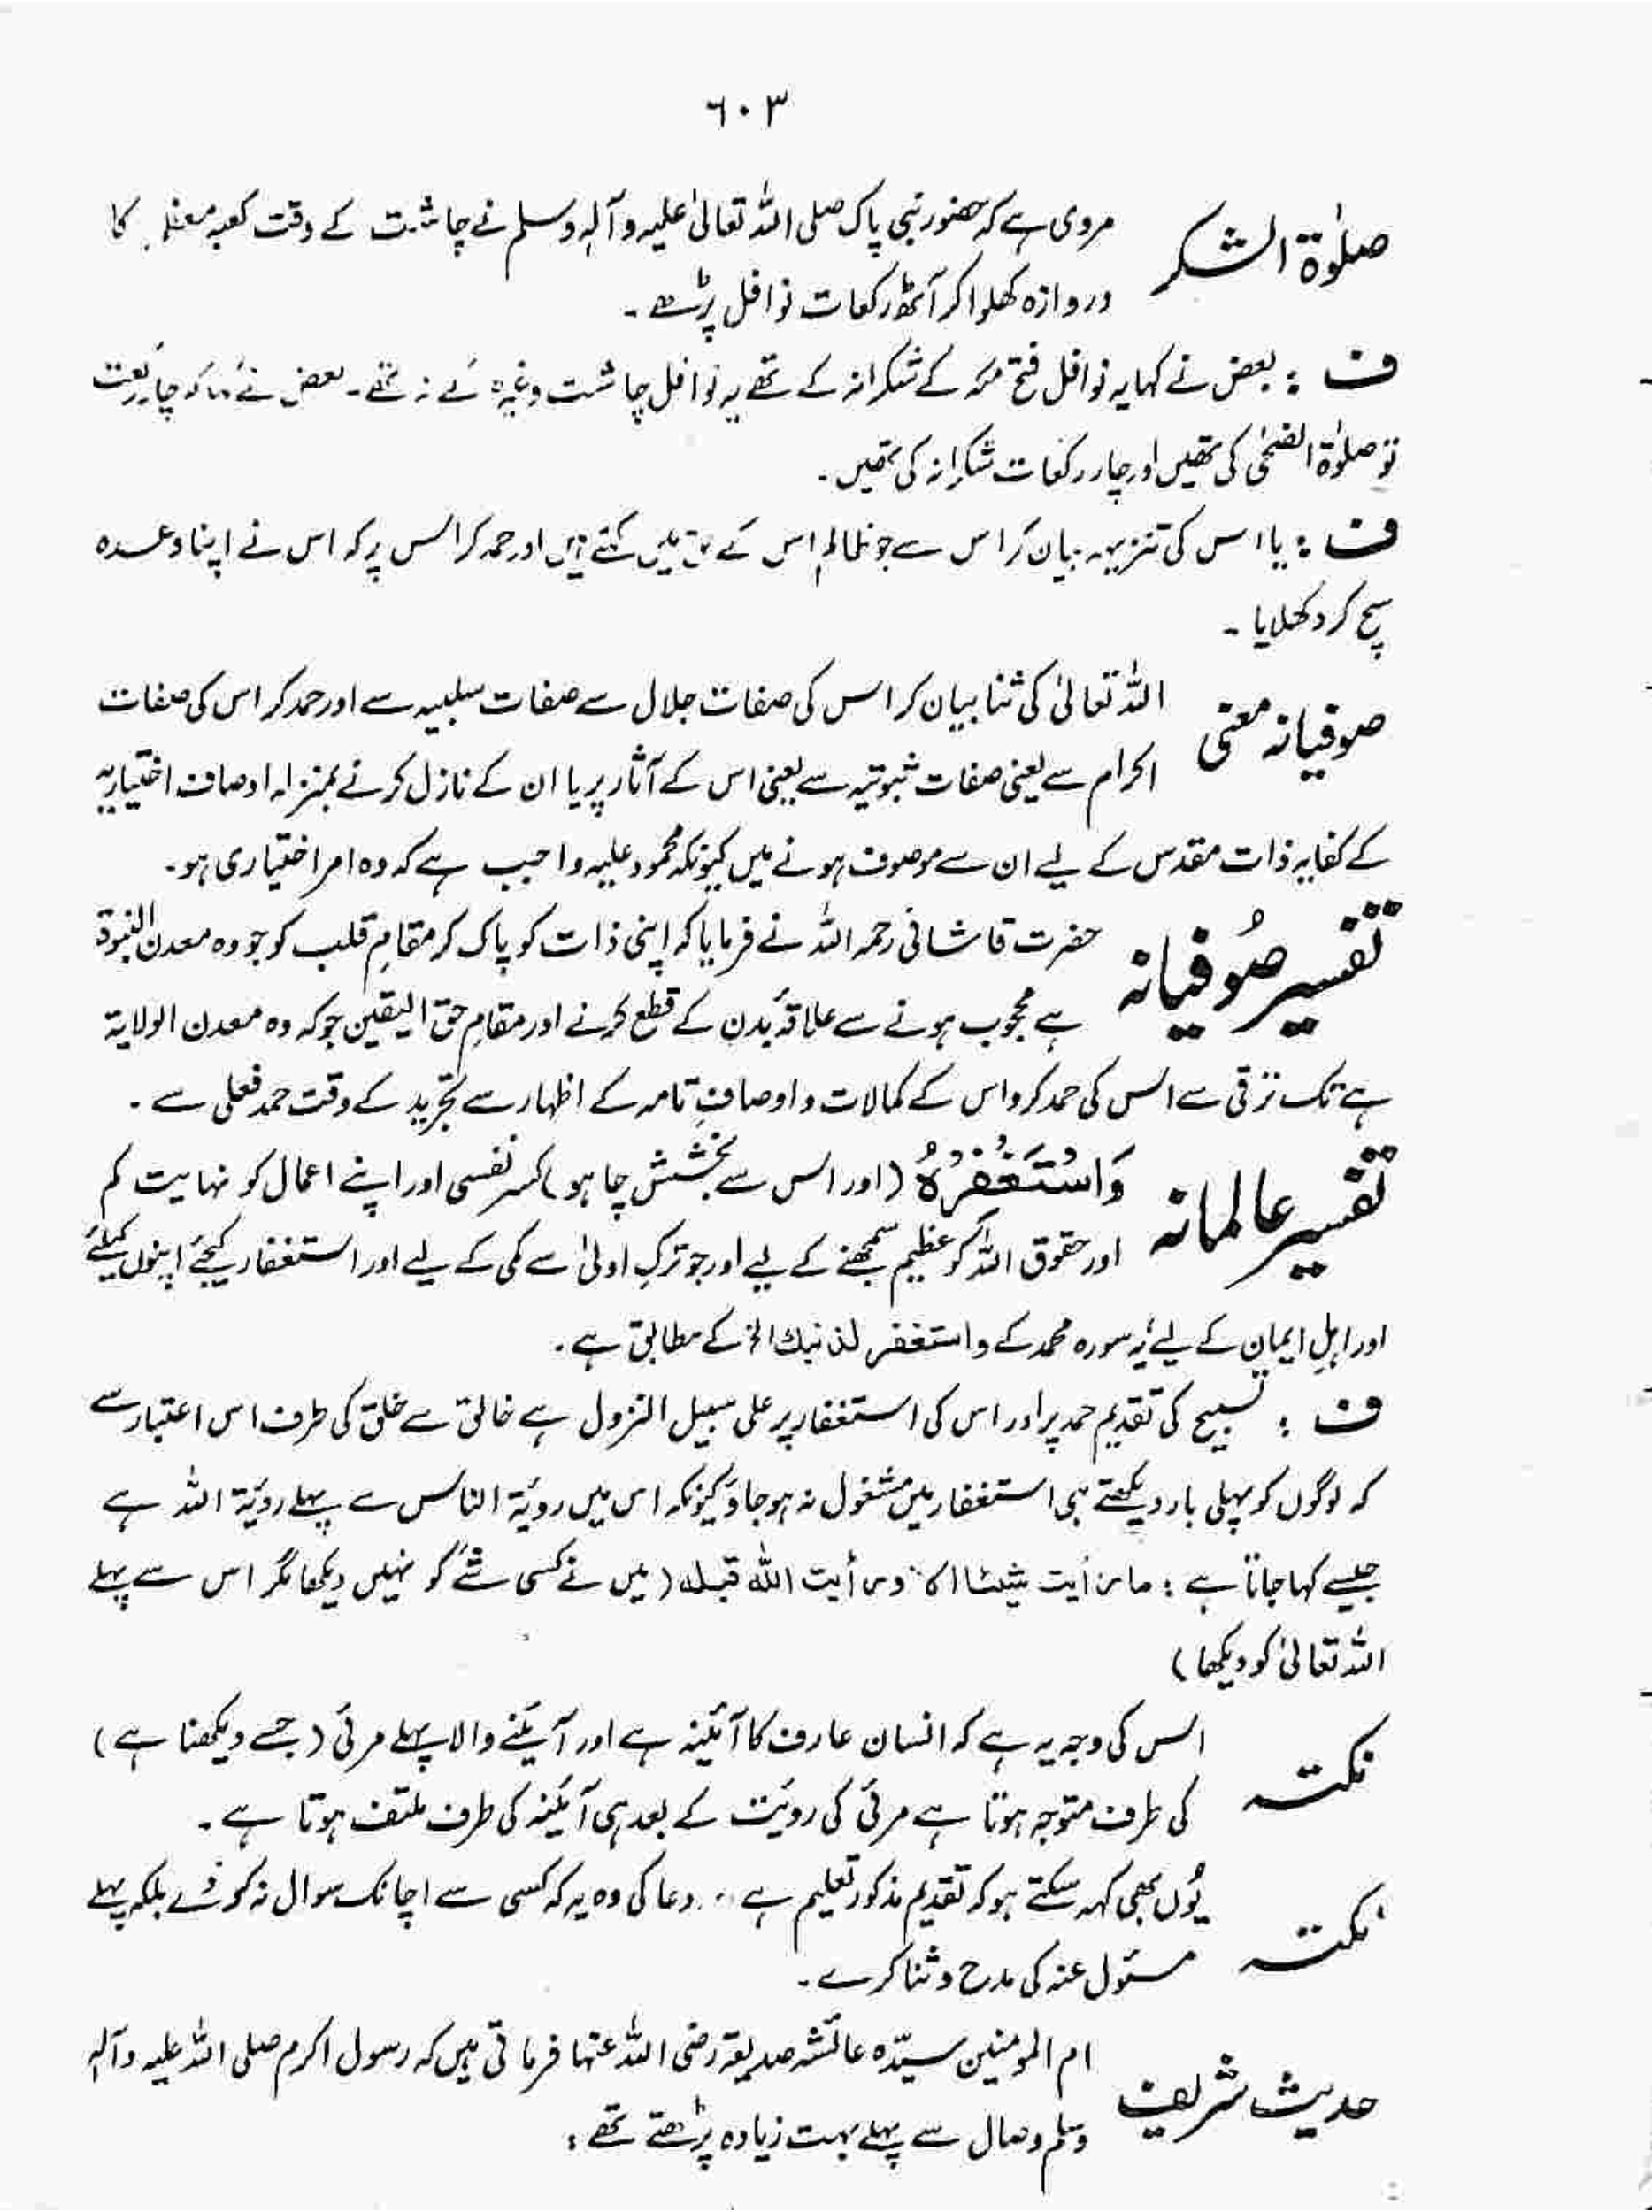 ٦٠٣
صلوٰۃ الشکر
مروی ہے کہ حضور نبی پاک صلی اللہ تعالیٰ علیہ وآلہٖ وسلم نے چاشت کے وقت کعبہ معظمہ کا
دروازہ کھلوا کر آٹھ رکعات نوافل پڑھے ۔
ف : بعض نے کہا یہ نوافل فتح مکہ کے شکرانہ کے تھے یہ نوافل چاشت وغیرہ کے نہ تھے ۔ بعض نے کہا کہ چار رکعت
تو صلوٰۃ الضحیٰ کی تھیں اور چار رکعات شکرانہ کی تھیں ۔
ف : یا اس کی تنزیہہ بیان کر اس سے جو ظالم اس کے حق میں کہتے ہیں اور حمد کر اس پر کہ اس نے اپنا وعدہ
سچ کر دکھلایا ۔
صوفیانہ معنی
اللہ تعالیٰ کی ثنا بیان کر اس کی صفات جلال سے صفات سلبیہ سے اور حمد کر اس کی صفات
اکرام سے یعنی صفات ثبوتیہ سے یعنی اس کے آثار پر یا ان کے نازل کرنے بمنزلہ اوصاف اختیاریہ
کے کفایہ ذات مقدس کے لیے ان سے موصوف ہونے میں کیونکہ محمود علیہ واجب ہے کہ وہ امر اختیاری ہو ۔
تفسیر صُوفیانہ
حضرت قاشانی رحمہ اللہ نے فرمایا کہ اپنی ذات کو پاک کر مقامِ قلب کو جو وہ معدن النبوۃ
ہے محجوب ہونے سے علاقۂ بدن کے قطع کرنے اور مقامِ حق الیقین جو کہ وہ معدن الولایۃ
ہے تک ترقی سے اس کی حمد کرو اس کے کمالات و اوصافِ تامہ کے اظہار سے تجرید کے وقت حمد فعلی سے ۔
تفسیر عالمانہ
وَاسْتَغْفِرْهُ (اور اس سے بخشش چاہو) کسر نفسی اور اپنے اعمال کو نہایت کم
اور حقوق اللہ کو عظیم سمجھنے کے لیے اور جو ترکِ اولیٰ سے کمی کے لیے اور استغفار کیجئے اپنوں کیلئے
اور اہلِ ایمان کے لیے یہ سورہ محمد کے واستغفر لذنبك الخ کے مطابق ہے ۔
ف : تسبیح کی تقدیم حمد پر اور اس کی استغفار پر علی سبیل النزول ہے خالق سے خلق کی طرف اس اعتبار سے
کہ لوگوں کو پہلی بار دیکھتے ہی استغفار میں مشغول نہ ہو جاؤ کیونکہ اس میں رویۃ الناس سے پہلے رویۃ اللہ ہے
جیسے کہا جاتا ہے : ما رأيت شيئا الا ورأيت الله قبله (میں نے کسی شے کو نہیں دیکھا مگر اس سے پہلے
اللہ تعالیٰ کو دیکھا)
نکتہ
اس کی وجہ یہ ہے کہ انسان عارف کا آئینہ ہے اور آئینے والا پہلے مرئی (جسے دیکھنا ہے)
کی طرف متوجہ ہوتا ہے مرئی کی رویت کے بعد ہی آئینہ کی طرف ملتفت ہوتا ہے ۔
نکتہ
یُوں بھی کہہ سکتے ہو کہ تقدیم مذکور تعلیم ہے دعا کی وہ یہ کہ کسی سے اچانک سوال نہ کرے بلکہ پہلے
مسئول عنہ کی مدح و ثنا کرے ۔
حدیث شریف
ام المومنین سیّدہ عائشہ صدیقہ رضی اللہ عنہا فرماتی ہیں کہ رسول اکرم صلی اللہ علیہ وآلہٖ
وسلم وصال سے پہلے بہت زیادہ پڑھتے تھے :